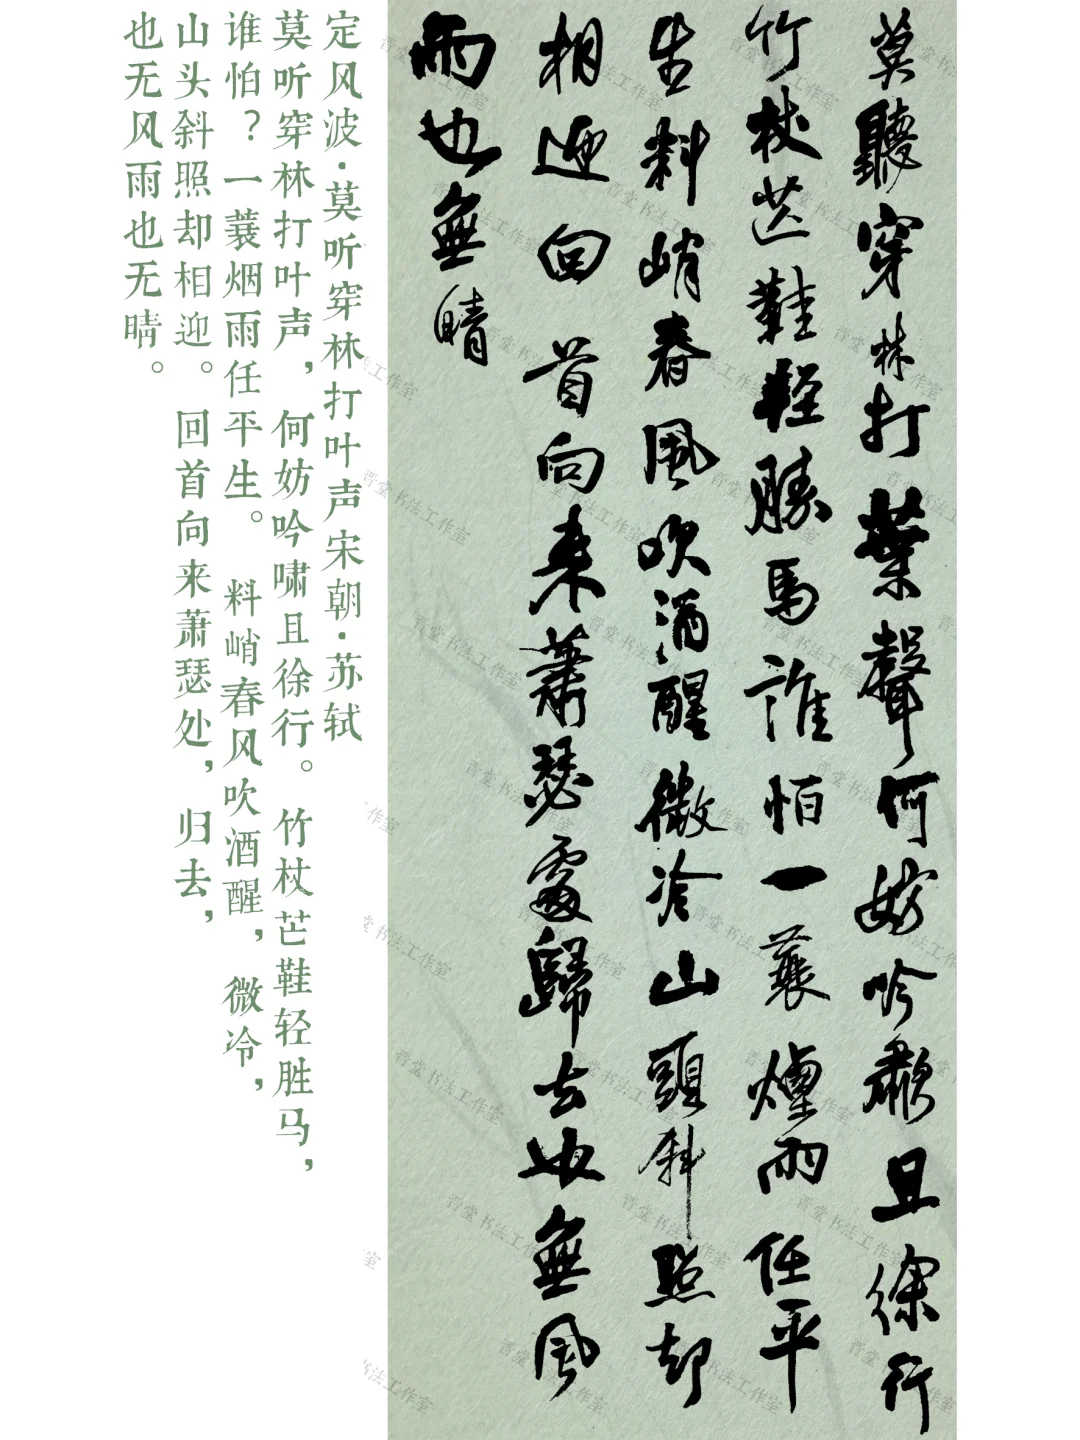 莫聽穿林打葉聲何妨吟嘯且徐行
竹杖芒鞋輕勝馬誰怕一蓑煙雨任平
生料峭春風吹酒醒微冷山頭斜照却
相迎回首向來蕭瑟處歸去也無風
雨也無晴
定风波·莫听穿林打叶声宋朝·苏轼
莫听穿林打叶声，何妨吟啸且徐行。竹杖芒鞋轻胜马，
谁怕？一蓑烟雨任平生。料峭春风吹酒醒，微冷，
山头斜照却相迎。回首向来萧瑟处，归去，
也无风雨也无晴。
晋堂书法工作室